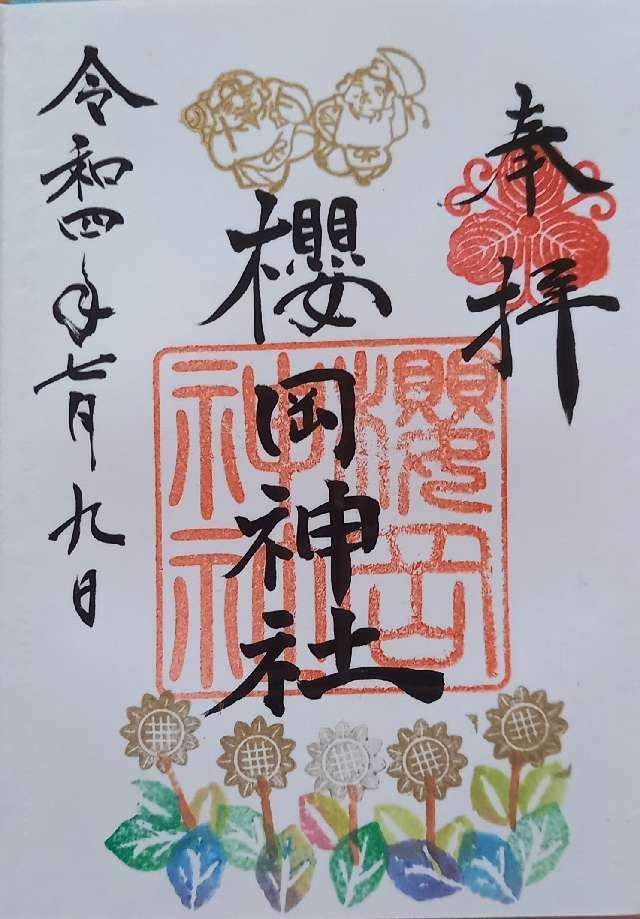 奉拝
櫻岡神社
櫻岡
神社
令和四年七月九日